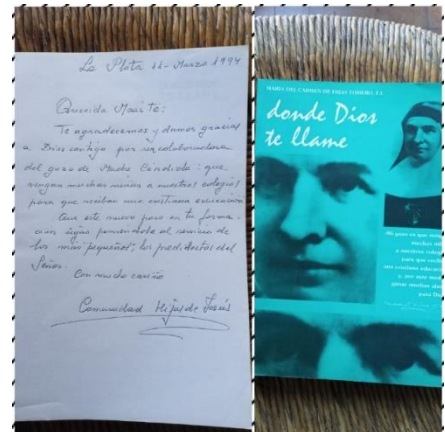 La Plata 14-Marzo 1994
Querida Maite:
Te agradecemos y damos gracias
a Dios contigo por ser colaboradora
del gozo de Madre Cándida: que
vengan muchas niñas a nuestros colegios
para que reciban una cristiana educación
Que este nuevo paso en tu forma-
ción sigas poniéndolo al servicio de
los más pequeños, los predilectos del
Señor.
Con mucho cariño
Comunidad Hijas de Jesús
MARIA DEL CARMEN DE FRIAS TOMERO, F.I.
donde Dios
te llame
Mi gozo es que vengan
muchas niñas
a nuestros colegios
para que reciban
una cristiana educación
y, por este medio,
ganar muchas almas
para Dios